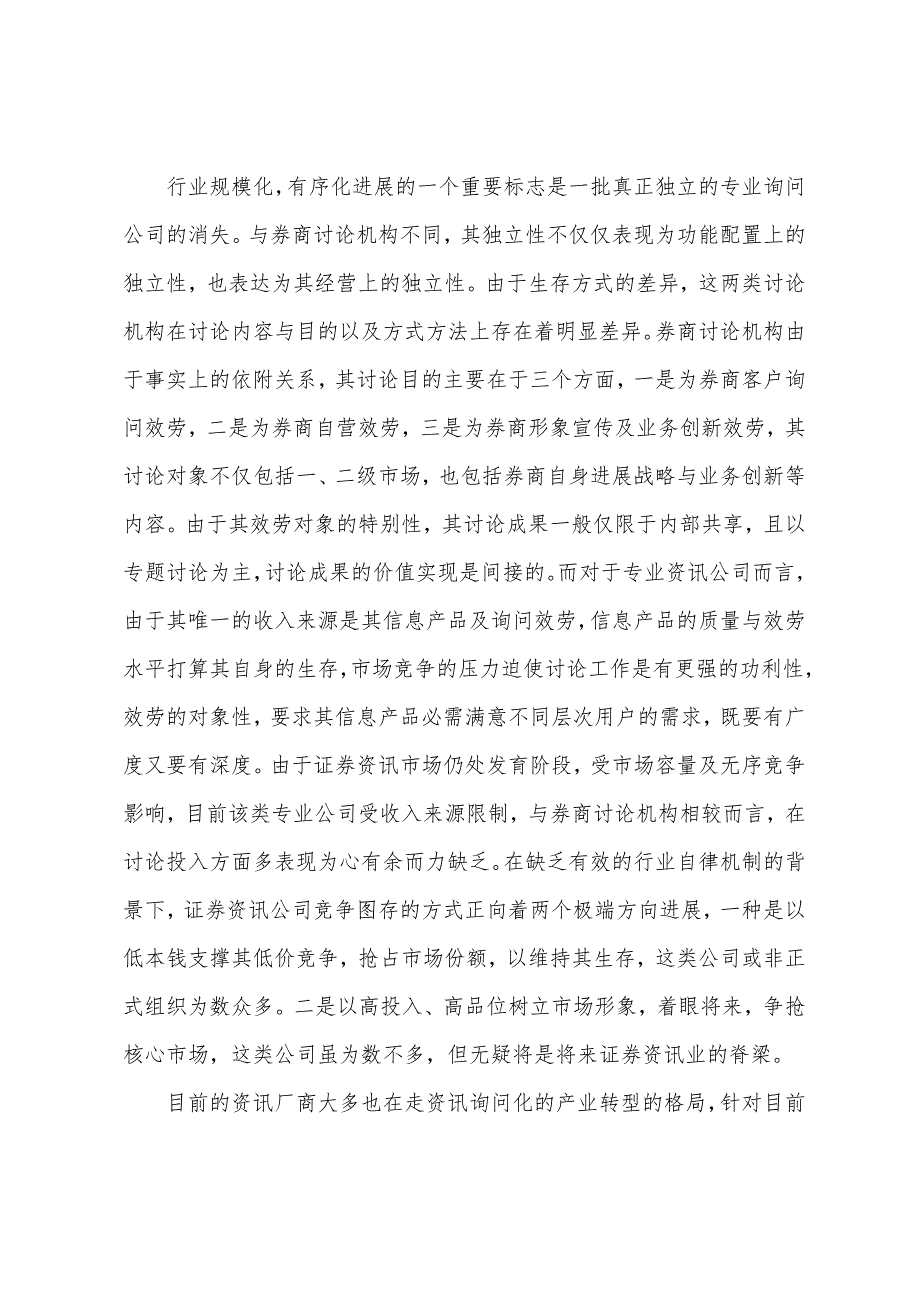 行业规模化，有序化进展的一个重要标志是一批真正独立的专业询问
公司的消失。与券商讨论机构不同，其独立性不仅仅表现为功能配置上的
独立性，也表达为其经营上的独立性。由于生存方式的差异，这两类讨论
机构在讨论内容与目的以及方式方法上存在着明显差异。券商讨论机构由
于事实上的依附关系，其讨论目的主要在于三个方面，一是为券商客户询
问效劳，二是为券商自营效劳，三是为券商形象宣传及业务创新效劳，其
讨论对象不仅包括一、二级市场，也包括券商自身进展战略与业务创新等
内容。由于其效劳对象的特别性，其讨论成果一般仅限于内部共享，且以
专题讨论为主，讨论成果的价值实现是间接的。而对于专业资讯公司而言，
由于其唯一的收入来源是其信息产品及询问效劳，信息产品的质量与效劳
水平打算其自身的生存，市场竞争的压力迫使讨论工作是有更强的功利性，
效劳的对象性，要求其信息产品必需满意不同层次用户的需求，既要有广
度又要有深度。由于证券资讯市场仍处发育阶段，受市场容量及无序竞争
影响，目前该类专业公司受收入来源限制，与券商讨论机构相较而言，在
讨论投入方面多表现为心有余而力缺乏。在缺乏有效的行业自律机制的背
景下，证券资讯公司竞争图存的方式正向着两个极端方向进展，一种是以
低本钱支撑其低价竞争，抢占市场份额，以维持其生存，这类公司或非正
式组织为数众多。二是以高投入、高品位树立市场形象，着眼将来，争抢
核心市场，这类公司虽为数不多，但无疑将是将来证券资讯业的脊梁。
目前的资讯厂商大多也在走资讯询问化的产业转型的格局，针对目前